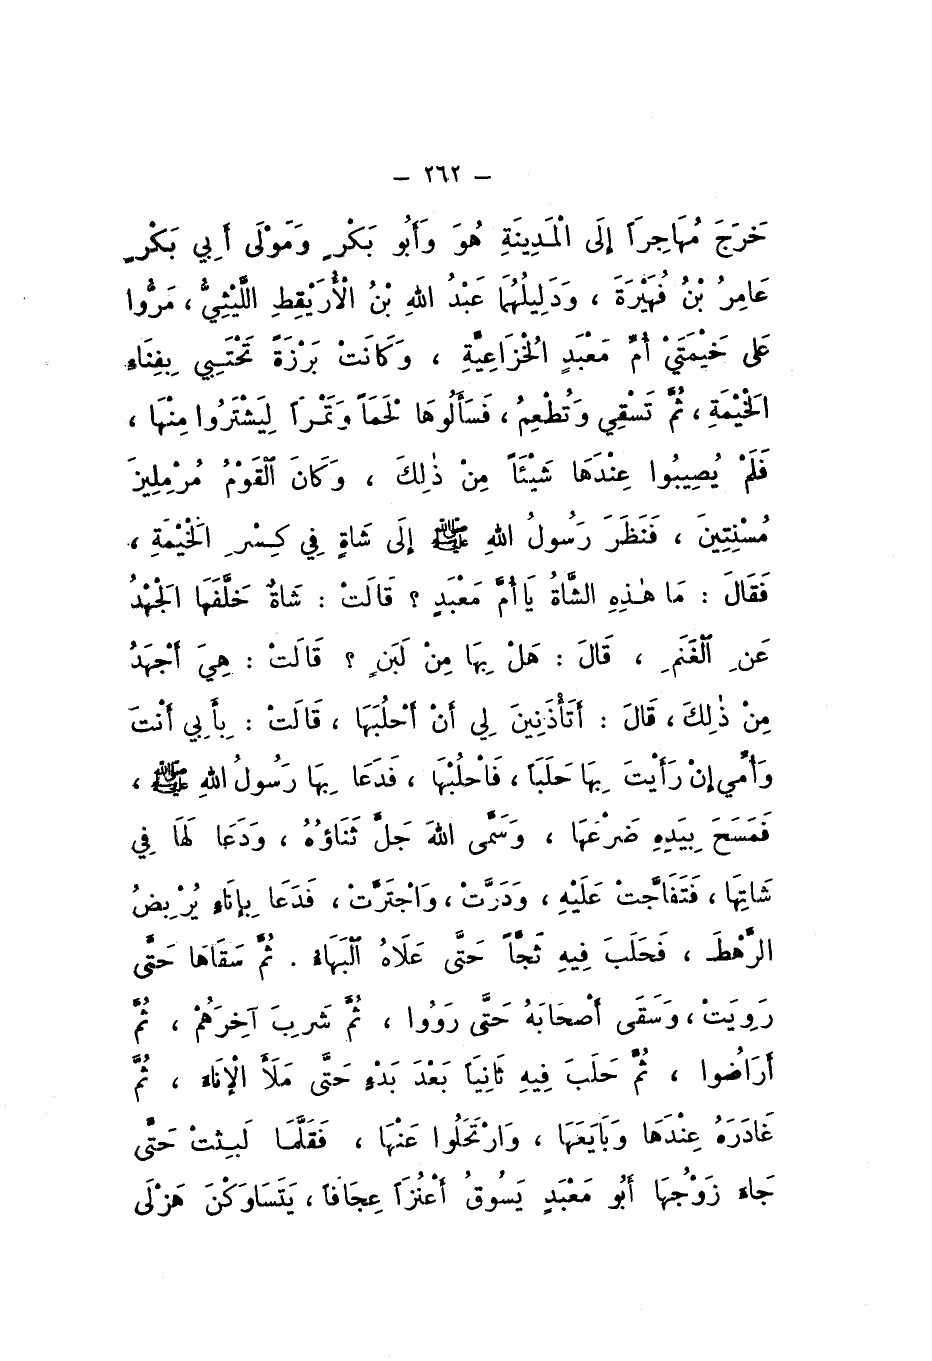 - ٢٦٢ -
خَرَجَ مُهَاجِراً إِلَى الْمَدِينَةِ هُوَ وَأَبُو بَكْرٍ وَمَوْلَى أَبِي بَكْرٍ
عَامِرُ بْنُ فُهَيْرَةَ ، وَدَلِيلُهُمَا عَبْدُ اللهِ بْنُ الْأُرَيْقِطِ اللَّيْثِيُّ ، مَرُّوا
عَلَى خَيْمَتَيْ أُمِّ مَعْبَدٍ الْخُزَاعِيَّةِ ، وَكَانَتْ بَرْزَةً تَحْتَبِي بِفِنَاءِ
الْخَيْمَةِ ، ثُمَّ تَسْقِي وَتُطْعِمُ ، فَسَأَلُوهَا لَحْمَاً وَتَمْرَاً لِيَشْتَرُوا مِنْهَا ،
فَلَمْ يُصِيبُوا عِنْدَهَا شَيْئَاً مِنْ ذٰلِكَ ، وَكَانَ ٱلْقَوْمُ مُرْمِلِينَ
مُسْنِتِينَ ، فَنَظَرَ رَسُولُ اللهِ ﷺ إِلَى شَاةٍ فِي كِسْرِ الْخَيْمَةِ ،
فَقَالَ : مَا هٰذِهِ الشَّاةُ يَا أُمَّ مَعْبَدٍ ؟ قَالَتْ : شَاةٌ خَلَّفَهَا الْجَهْدُ
عَنِ ٱلْغَنَمِ ، قَالَ : هَلْ بِهَا مِنْ لَبَنٍ ؟ قَالَتْ : هِيَ أَجْهَدُ
مِنْ ذٰلِكَ ، قَالَ : أَتَأْذَنِينَ لِي أَنْ أَحْلُبَهَا ، قَالَتْ : بِأَبِي أَنْتَ
وَأُمِّي إِنْ رَأَيْتَ بِهَا حَلَبَاً ، فَاحْلُبْهَا ، فَدَعَا بِهَا رَسُولُ اللهِ ﷺ ،
فَمَسَحَ بِيَدِهِ ضَرْعَهَا ، وَسَمَّى اللهَ جَلَّ ثَنَاؤُهُ ، وَدَعَا لَهَا فِي
شَاتِهَا ، فَتَفَاجَّتْ عَلَيْهِ ، وَدَرَّتْ ، وَاجْتَرَّتْ ، فَدَعَا بِإِنَاءٍ يُرْبِضُ
الرَّهْطَ ، فَحَلَبَ فِيهِ ثَجَّاً حَتَّى عَلَاهُ ٱلْبَهَاءُ . ثُمَّ سَقَاهَا حَتَّى
رَوِيَتْ ، وَسَقَى أَصْحَابَهُ حَتَّى رَوُوا ، ثُمَّ شَرِبَ آخِرَهُمْ ، ثُمَّ
أَرَاضُوا ، ثُمَّ حَلَبَ فِيهِ ثَانِيَاً بَعْدَ بَدْءٍ حَتَّى مَلَأَ الْإِنَاءَ ، ثُمَّ
غَادَرَهُ عِنْدَهَا وَبَايَعَهَا ، وَارْتَحَلُوا عَنْهَا ، فَقَلَّمَا لَبِثَتْ حَتَّى
جَاءَ زَوْجُهَا أَبُو مَعْبَدٍ يَسُوقُ أَعْنُزَاً عِجَافَاً ، يَتَسَاوَكْنَ هَزْلَى